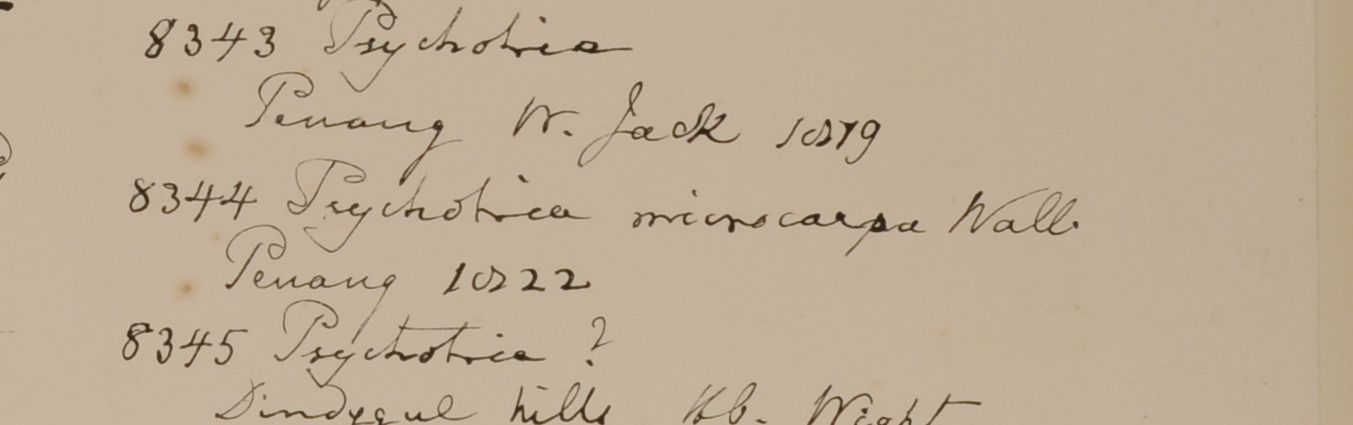 8343 Psychotria
Penang W. Jack 1819
8344 Psychotria microcarpa Wall.
Penang 1822
8345 Psychotria ?
Dindygul hills Hb. Wight